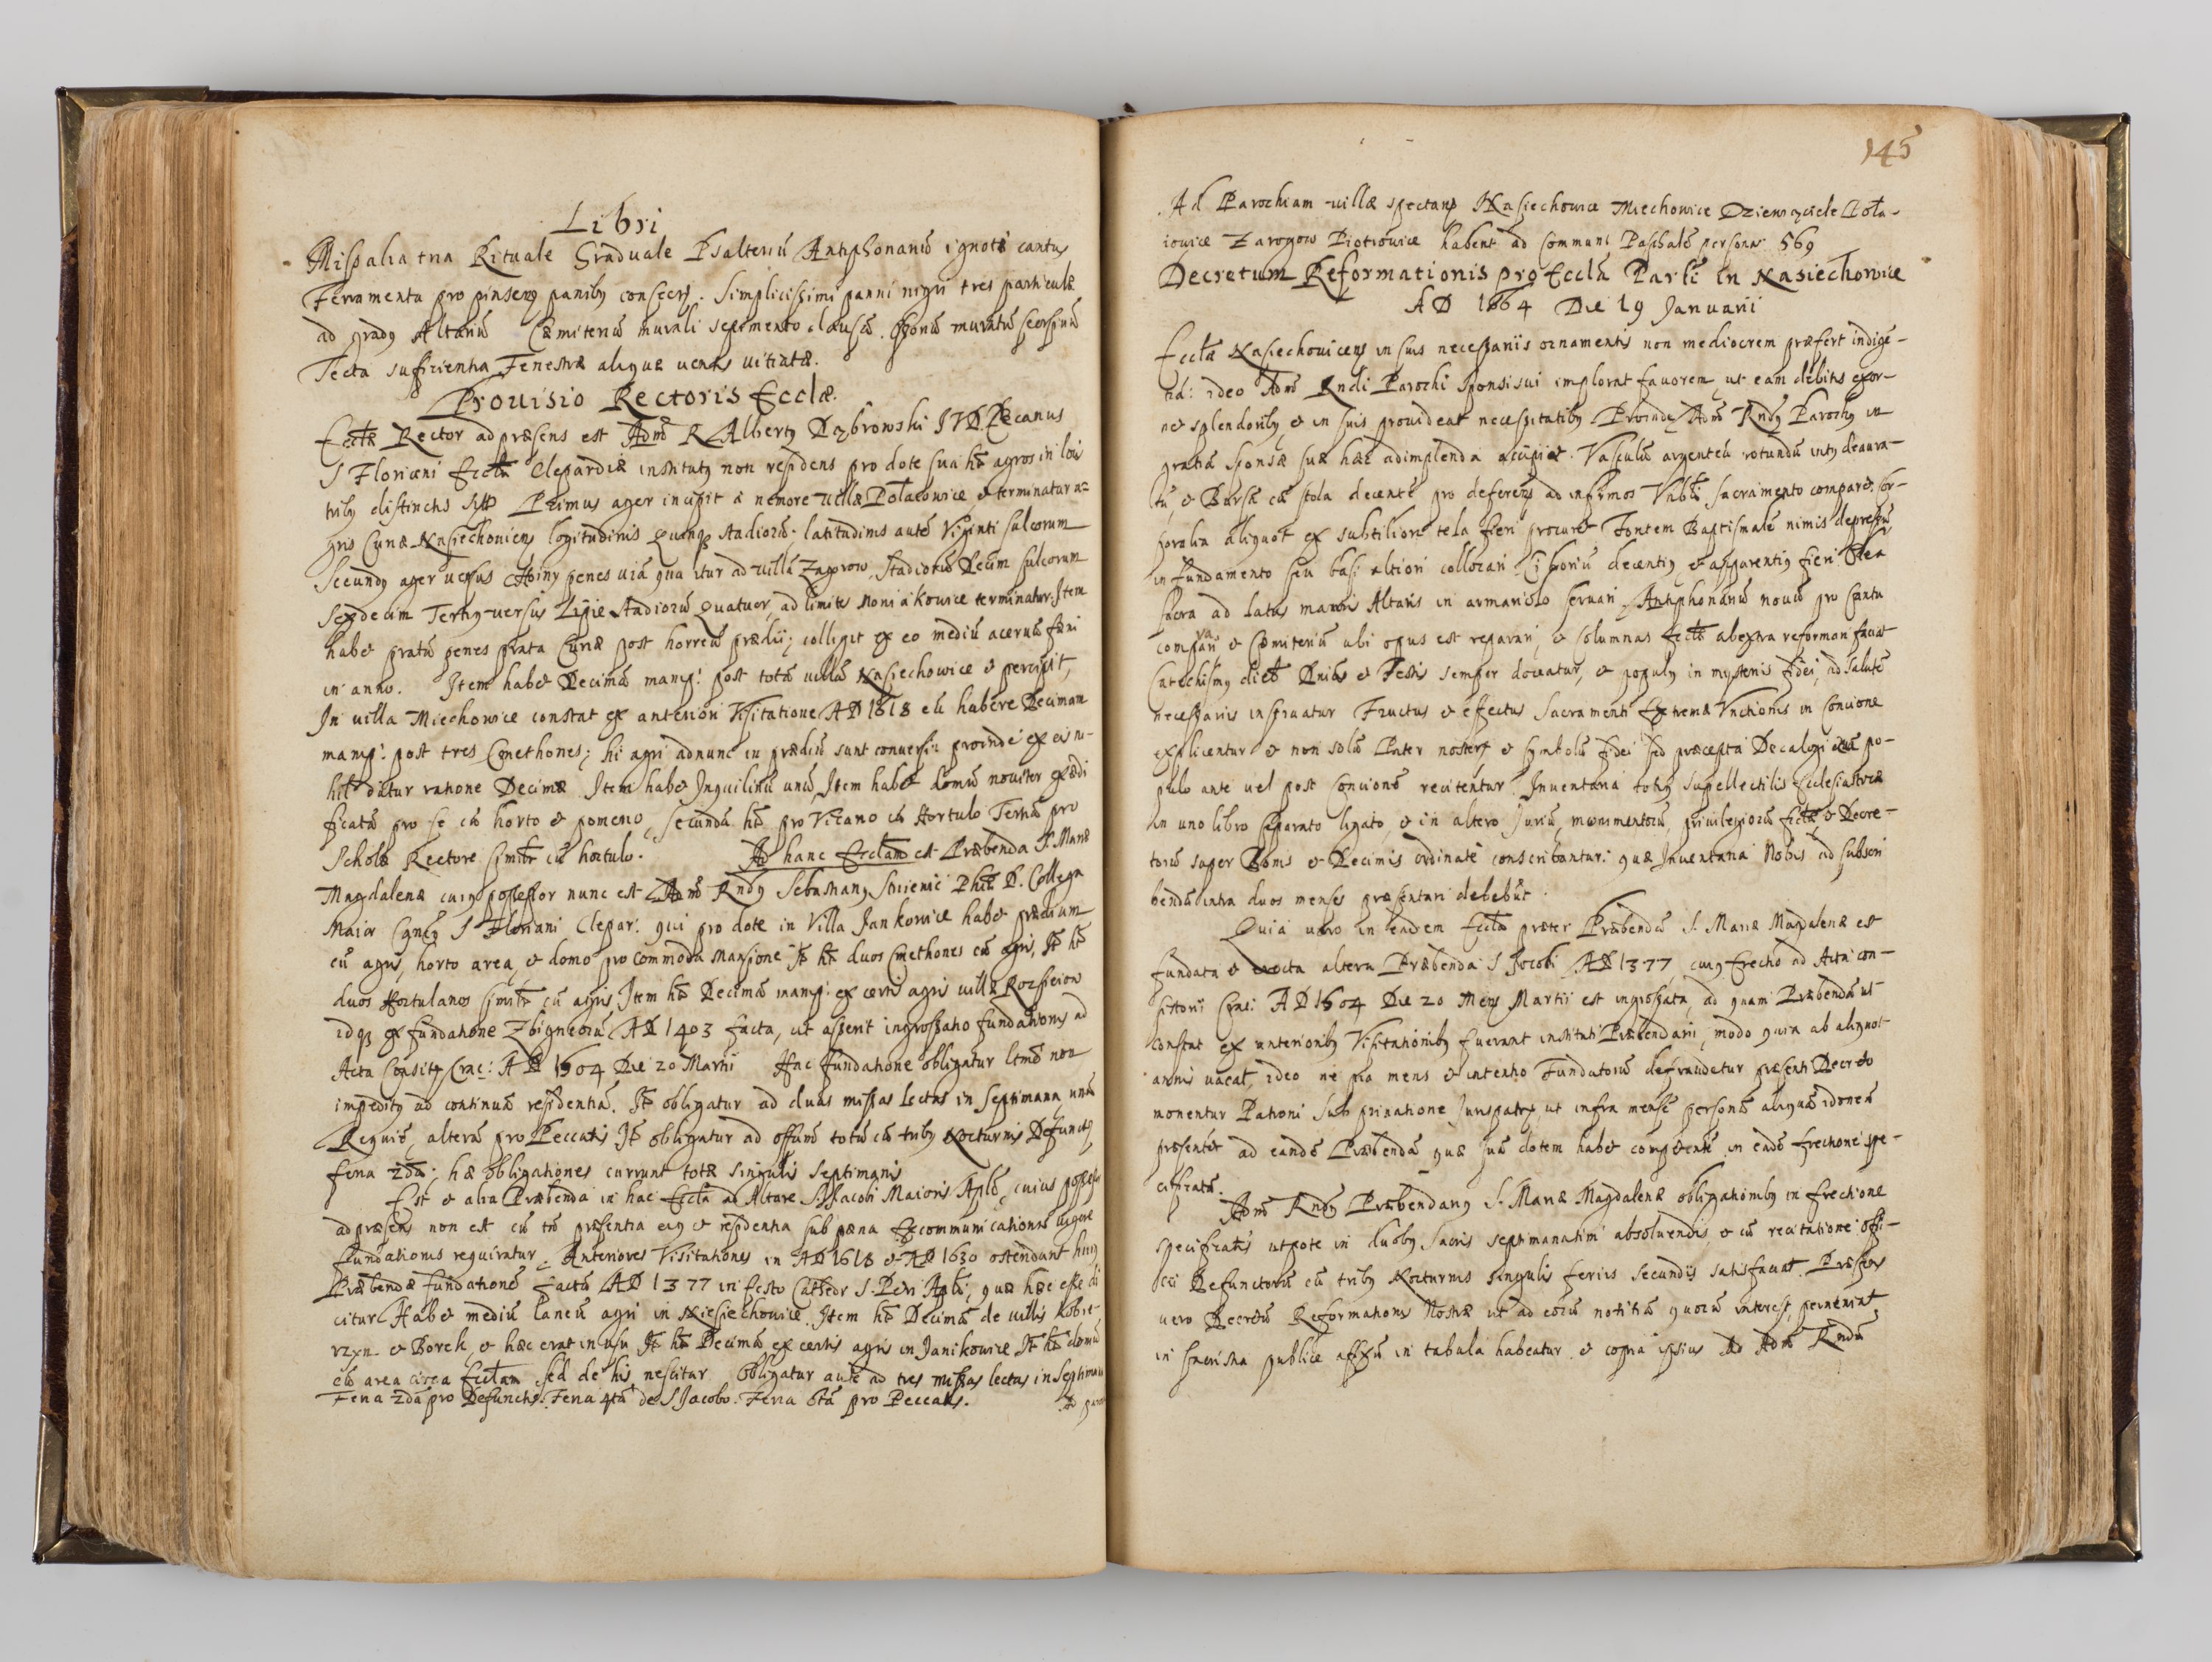 Libri
Missalia tria Rituale Graduale Psalteriū Antiphonariū ignoti cantus
Ferramenta pro pinsen panibꝰ consecr. Simplicissimi panni nigri tres particulæ
ad gradꝰ Altariū Cæmiteriū murali sepimento clausū. muratū seorsivū
Tecta sufficientia Fenestræ aliquæ ventis vitiatæ.
Prouisio Rectoris Ecclæ.
Ecclæ Rector ad præsens est Admō R Albertꝰ Dąbrowski IVD. Decanus
S Floriani Eccla Clepardiæ institutꝰ non residens pro dote sua ht agros in locis
tribꝰ distinctis Primus ager incipit a nemore villæ Polanowice, et terminatur a-
gris Curiæ Nasiechouicen longitudinis Quinqꝫ stadiorū. latitudinis autē Viginti sulcorum
Secundꝰ ager versus penes viā qua itur ad villā Zagorow, Stadiorū Decim sulcorum
Sexdecim Tertiꝰ versus Stadiorū Quatuor, ad limites Moniakowice terminatur. Item
habet pratū penes prata Curiæ post horreū prædii; colligit ex eo mediū aceruū fæni
in anno. Item habet Decimā manip: post totā villā Nasiechowice et percipit,
In villa Miechowice constat ex anteriori Visitatione AD 1618 eū habere Decimam
manip: post tres Cmethones; hi agri adnunc in prædiū sunt conuersi: proinde ex eis ni-
hil datur ratione Decimæ Item habet Inquilinū unū, Item habet domū nouiter exædi
ficatā pro se cū horto et pomerio, secundā ht pro Vicario cū Hortulo Tertiā pro
Scholæ Rectore simltr cū hortulo. Ad hanc Ecclam est Præbenda S. Mariæ
Magdalenæ cuiꝰ possessor nunc est Admō Rndꝰ Sebastianꝰ Phiæ D. Collega
Maior S Floriani Clepar: qui pro dote in Villa Jankowice habet prædium
cū agris, horto area, et domo pro commoda mansione It ht duos Cmethones cū agris, It ht
duos Hortulanos simltr cū agris Item ht Decimā manip: ex certis agris villæ
idqꝫ ex fundatione Zbigneorū AD 1403 facta, ut asserit ingrossatio fundationis ad
Acta Crac: AD 1604 Die 20 Martii Hac fundatione obligatur ltmē non
impeditꝰ ad continuā residentiā. It obligatur ad duas missas lectas in Septimana, unā
Requiē, alterā pro Peccatis It obligatur ad offium totū cū tribꝰ Nocturnis Defunctꝫ
feria 2da; hæ obligationes currunt totæ singulis septimanis
Est et alia Præbenda in hac Eccla ad Altare S Jacobi Maioris Apli, cuius possessor
ad præsens non est cū tn̄ præsentia eiꝰ et residentia sub pæna Excommunicationis vigore
fundationis requiratur, Anteriores Visitationes in AD 1618 et AD 1630 ostendunt huiꝰ
Præbendæ fundationē factā AD 1377 in festo Cathedr S. Petri Apli, quæ hæc esse di
citur Habet mediū laneū agri in Niesiechowice. Item ht Decimā de villis Kobie-
rzyn et Borek, et hæc erat in usu It ht Decimā ex certis agris in Janikowice It ht domū
cū area circa Ecclam sed de his nescitur Obligatur autē ad tres missas lectas in Septimana
Feria 2da pro Defunctis. Feria 4ta de S Jacobo. Feria 6ta pro Peccatis.
Ad paro
145
Ad Parochiam villæ spectant Nasiechowice Miechowice Dziewięciele Pola-
iowice Zarogow Piotrowice habent ad Communi Paschalē personas 569
Decretum Reformationis pro Eccla Parli in Nasiechowice
AD 1664 Die 19 Januarii
Eccla Nasiechouicens in suis necessariis ornamentis non mediocrem præfert indigē-
tiā: ideo Admō Rndi Parochi sponsi sui implorat fauorem, ut eam debitis exor-
net splendoribꝰ et in suis prouideat necessitatibꝰ. Proinde Admō Rndꝰ Parochꝰ in
gratiā Sponsæ suæ hæc adimplenda accipiet. Vasculū argenteū rotundū intꝰ deaura-
tū, et Bursā cū stola decentē pro deferen ad infirmos Vnbli Sacramento comparet. Cor-
poralia aliquot ex subtiliori tela fieri procuret Fontem Baptismalē nimis depressū
in fundamento seu basi altiori collocari Ciboriū decentiꝰ et apparentiꝰ fieri. Olea
sacra ad latus maioris Altaris in armariolo seruari Antiphonariū nouū pro Cantu
comparari et Cæmiteriū ubi opus est reparari, et Columnas Ecclæ ab extra reformari faciat
Catechismꝰ dieb Dnicis et Festis semper doceatur, et populꝰ in mysteriis fidei, ad salutē
necessariis instruatur Fructus et effectus Sacramenti Extremæ Vnctionis in Concione
explicentur et non solū Pater noster, et symbolū fidei sed præcepta Decalogi cum po-
pulo ante vel post Concionē recitentur. Inuentaria totiꝰ supellectilis Ecclesiasticæ
in uno libro separato ligato, et in altero Juriū, monumentorū, priuilegiorū Ecclæ et Decre-
torū super Bonis et Decimis ordinatē conscribantur: quæ Inuentaria Nobis ad subscri
bendū intra duos menses præsentari debebūt.
Quia vero in eadem Eccla præter Præbendā S. Mariæ Magdalenæ est
fundata et erecta altera Præbenda S Jacobi AD 1377 cuiꝰ Erectio ad Acta con-
sistorii Crac: AD 1604 Die 20 Mens Martii est ingrossata, ad quam Præbendā ut
constat ex anterioribꝰ Visitationibꝰ fuerant instituti Præbendarii, modo quia ab aliquot
annis vacat, ideo ne pia mens et intentio Fundatorū defraudetur præsenti Decreto
monentur Patroni sub priuatione Jurispatrꝰ ut infra mensē personā aliquā idoneā
præsentēt ad eandē Præbendā quæ suā dotem habet competentē in eadē Erectione spe-
cificatā.
Admō Rndꝰ Præbendariꝰ S. Mariæ Magdalenæ obligationibꝰ in Erectione
specificatis utpote in duobꝰ Sacris septimanatim absoluendis, et cū recitatione offi-
cii Defunctorū cū tribꝰ Nocturnis singulis feriis secundis satisfaciat. Præsens
vero Decretū Reformationis Nostræ ut ad eorū notitiā quorū interest, perueniat
in sacristia publice affixū in tabula habeatur et copia ipsius Ad Admō Rndū